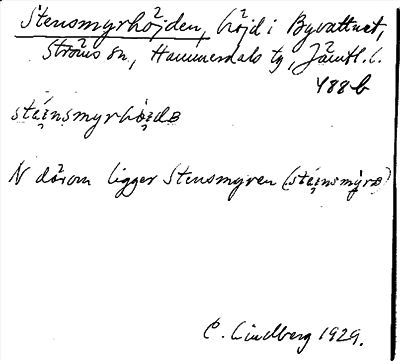 Stensmyrhöjden, höjd i Byvattnet,
Ströms sn, Hammerdals tg, Jämtl. l.
488b
stéi̯nsmyrhò̤i̯də
N därom ligger Stensmyren (stéi̯nsmy̤rə)
C. Lindberg 1929.